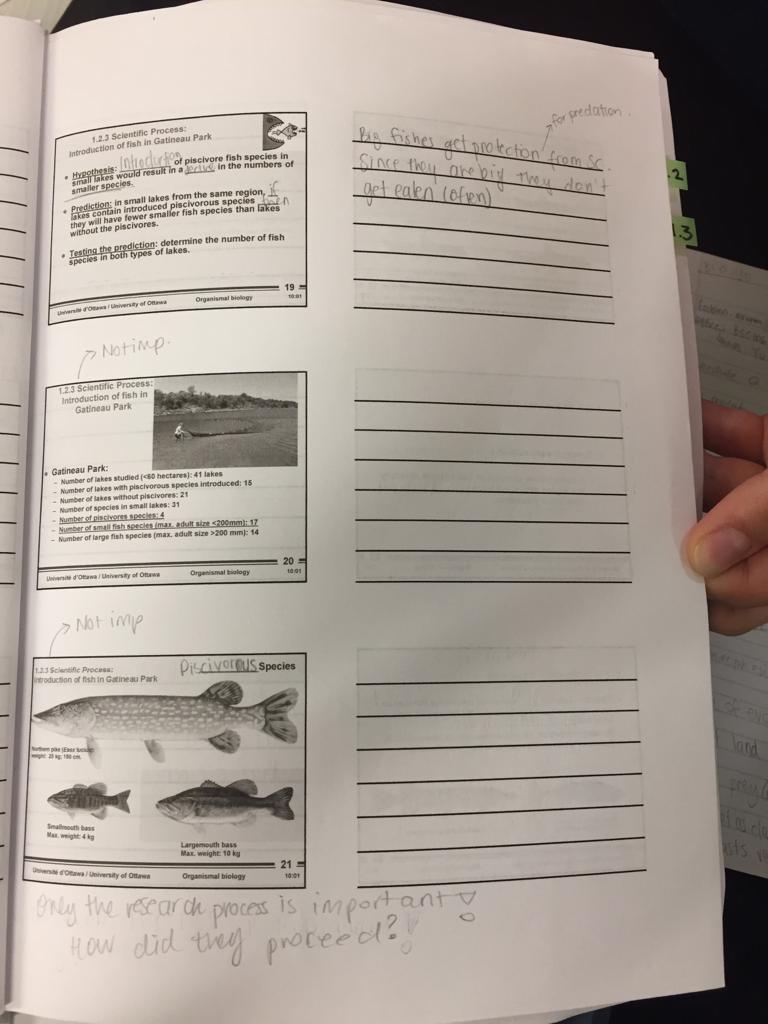 1.2.3 Scientific Process:
Introduction of fish in Gatineau Park
• Hypothesis: Introduction of piscivore fish species in
small lakes would result in a decline in the numbers of
smaller species.
• Prediction: in small lakes from the same region, if
lakes contain introduced piscivorous species then
they will have fewer smaller fish species than lakes
without the piscivores.
• Testing the prediction: determine the number of fish
species in both types of lakes.
19
Université d'Ottawa / University of Ottawa Organismal biology 10:01
for predation.
Big fishes get protection from sc.
Since they are big they don't
get eaten (often)
.2
1.3
Not imp.
1.2.3 Scientific Process:
Introduction of fish in
Gatineau Park
• Gatineau Park:
– Number of lakes studied (<60 hectares): 41 lakes
– Number of lakes with piscivorous species introduced: 15
– Number of lakes without piscivores: 21
– Number of species in small lakes: 31
– Number of piscivores species: 4
– Number of small fish species (max. adult size <200mm): 17
– Number of large fish species (max. adult size >200 mm): 14
20
Université d'Ottawa / University of Ottawa Organismal biology 10:01
Not imp
1.2.3 Scientific Process: Piscivorous Species
Introduction of fish in Gatineau Park
Northern pike (Esox lucius)
weight: 25 kg; 150 cm.
Smallmouth bass
Max. weight: 4 kg
Largemouth bass
Max. weight: 10 kg
21
Université d'Ottawa / University of Ottawa Organismal biology 10:01
Only the research process is important!
How did they proceed?!
land